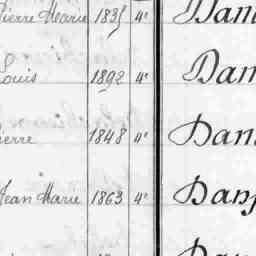 Pierre Marie 1835 4° Dani
Louis 1892 4° Dan
Pierre 1848 4° Dans
Jean Marie 1863 4° Dans